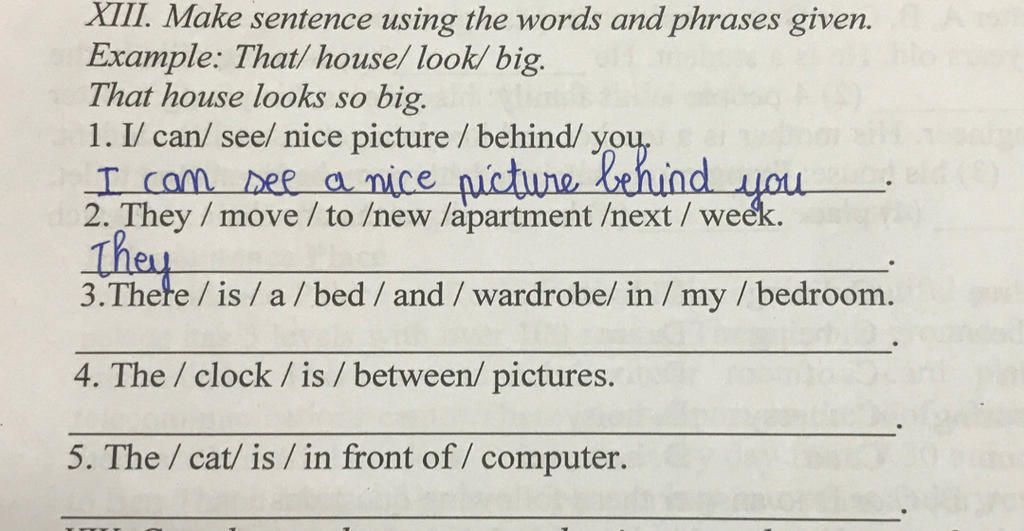 XIII. Make sentence using the words and phrases given.
Example: That/ house/ look/ big.
That house looks so big.
1. I/ can/ see/ nice picture / behind/ you.
I can see a nice picture behind you.
2. They / move / to /new /apartment /next / week.
They .
3.There / is / a / bed / and / wardrobe/ in / my / bedroom.
4. The / clock / is / between/ pictures.
5. The / cat/ is / in front of / computer.